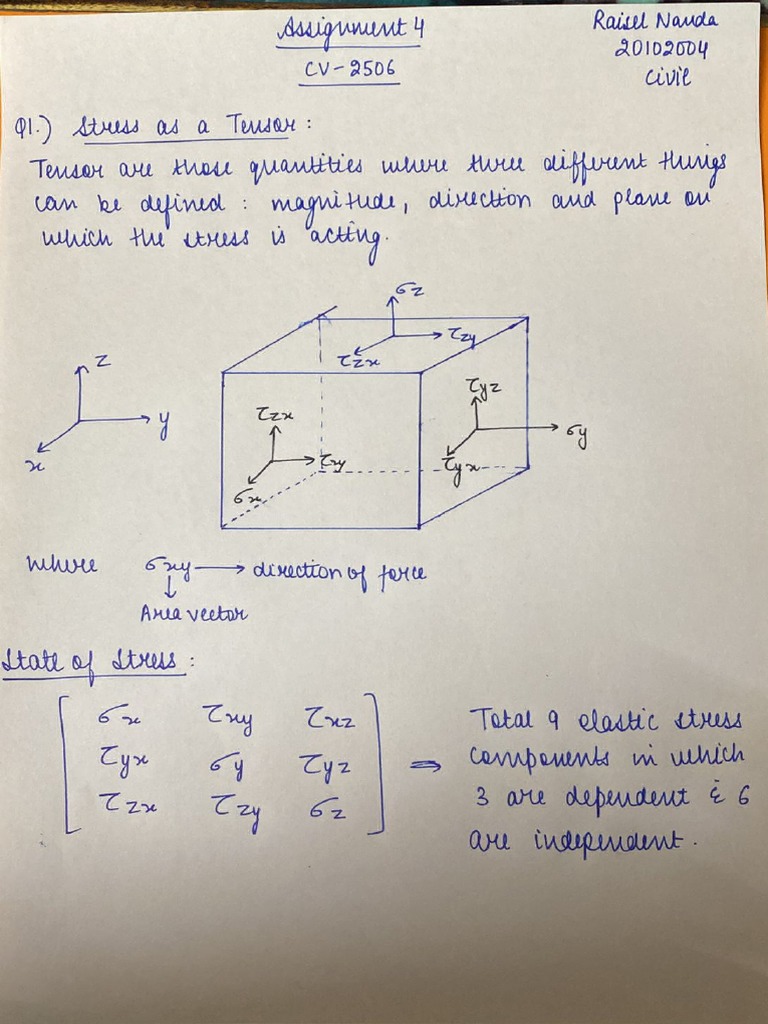 Assignment 4
CV-2506
Raisel Nanda
20102004
Civil
Q1.) Stress as a Tensor :
Tensor are those quantities where three different things
can be defined : magnitude, direction and plane on
which the stress is acting.
z
y
x
σz
τzy
τzx
τzx
τxy
σx
τyz
σy
τyx
where σxy → direction of force
↓
Area vector
State of Stress :
σx τxy τxz
τyx σy τyz
τzx τzy σz
⇒ Total 9 elastic stress
components in which
3 are dependent & 6
are independent.